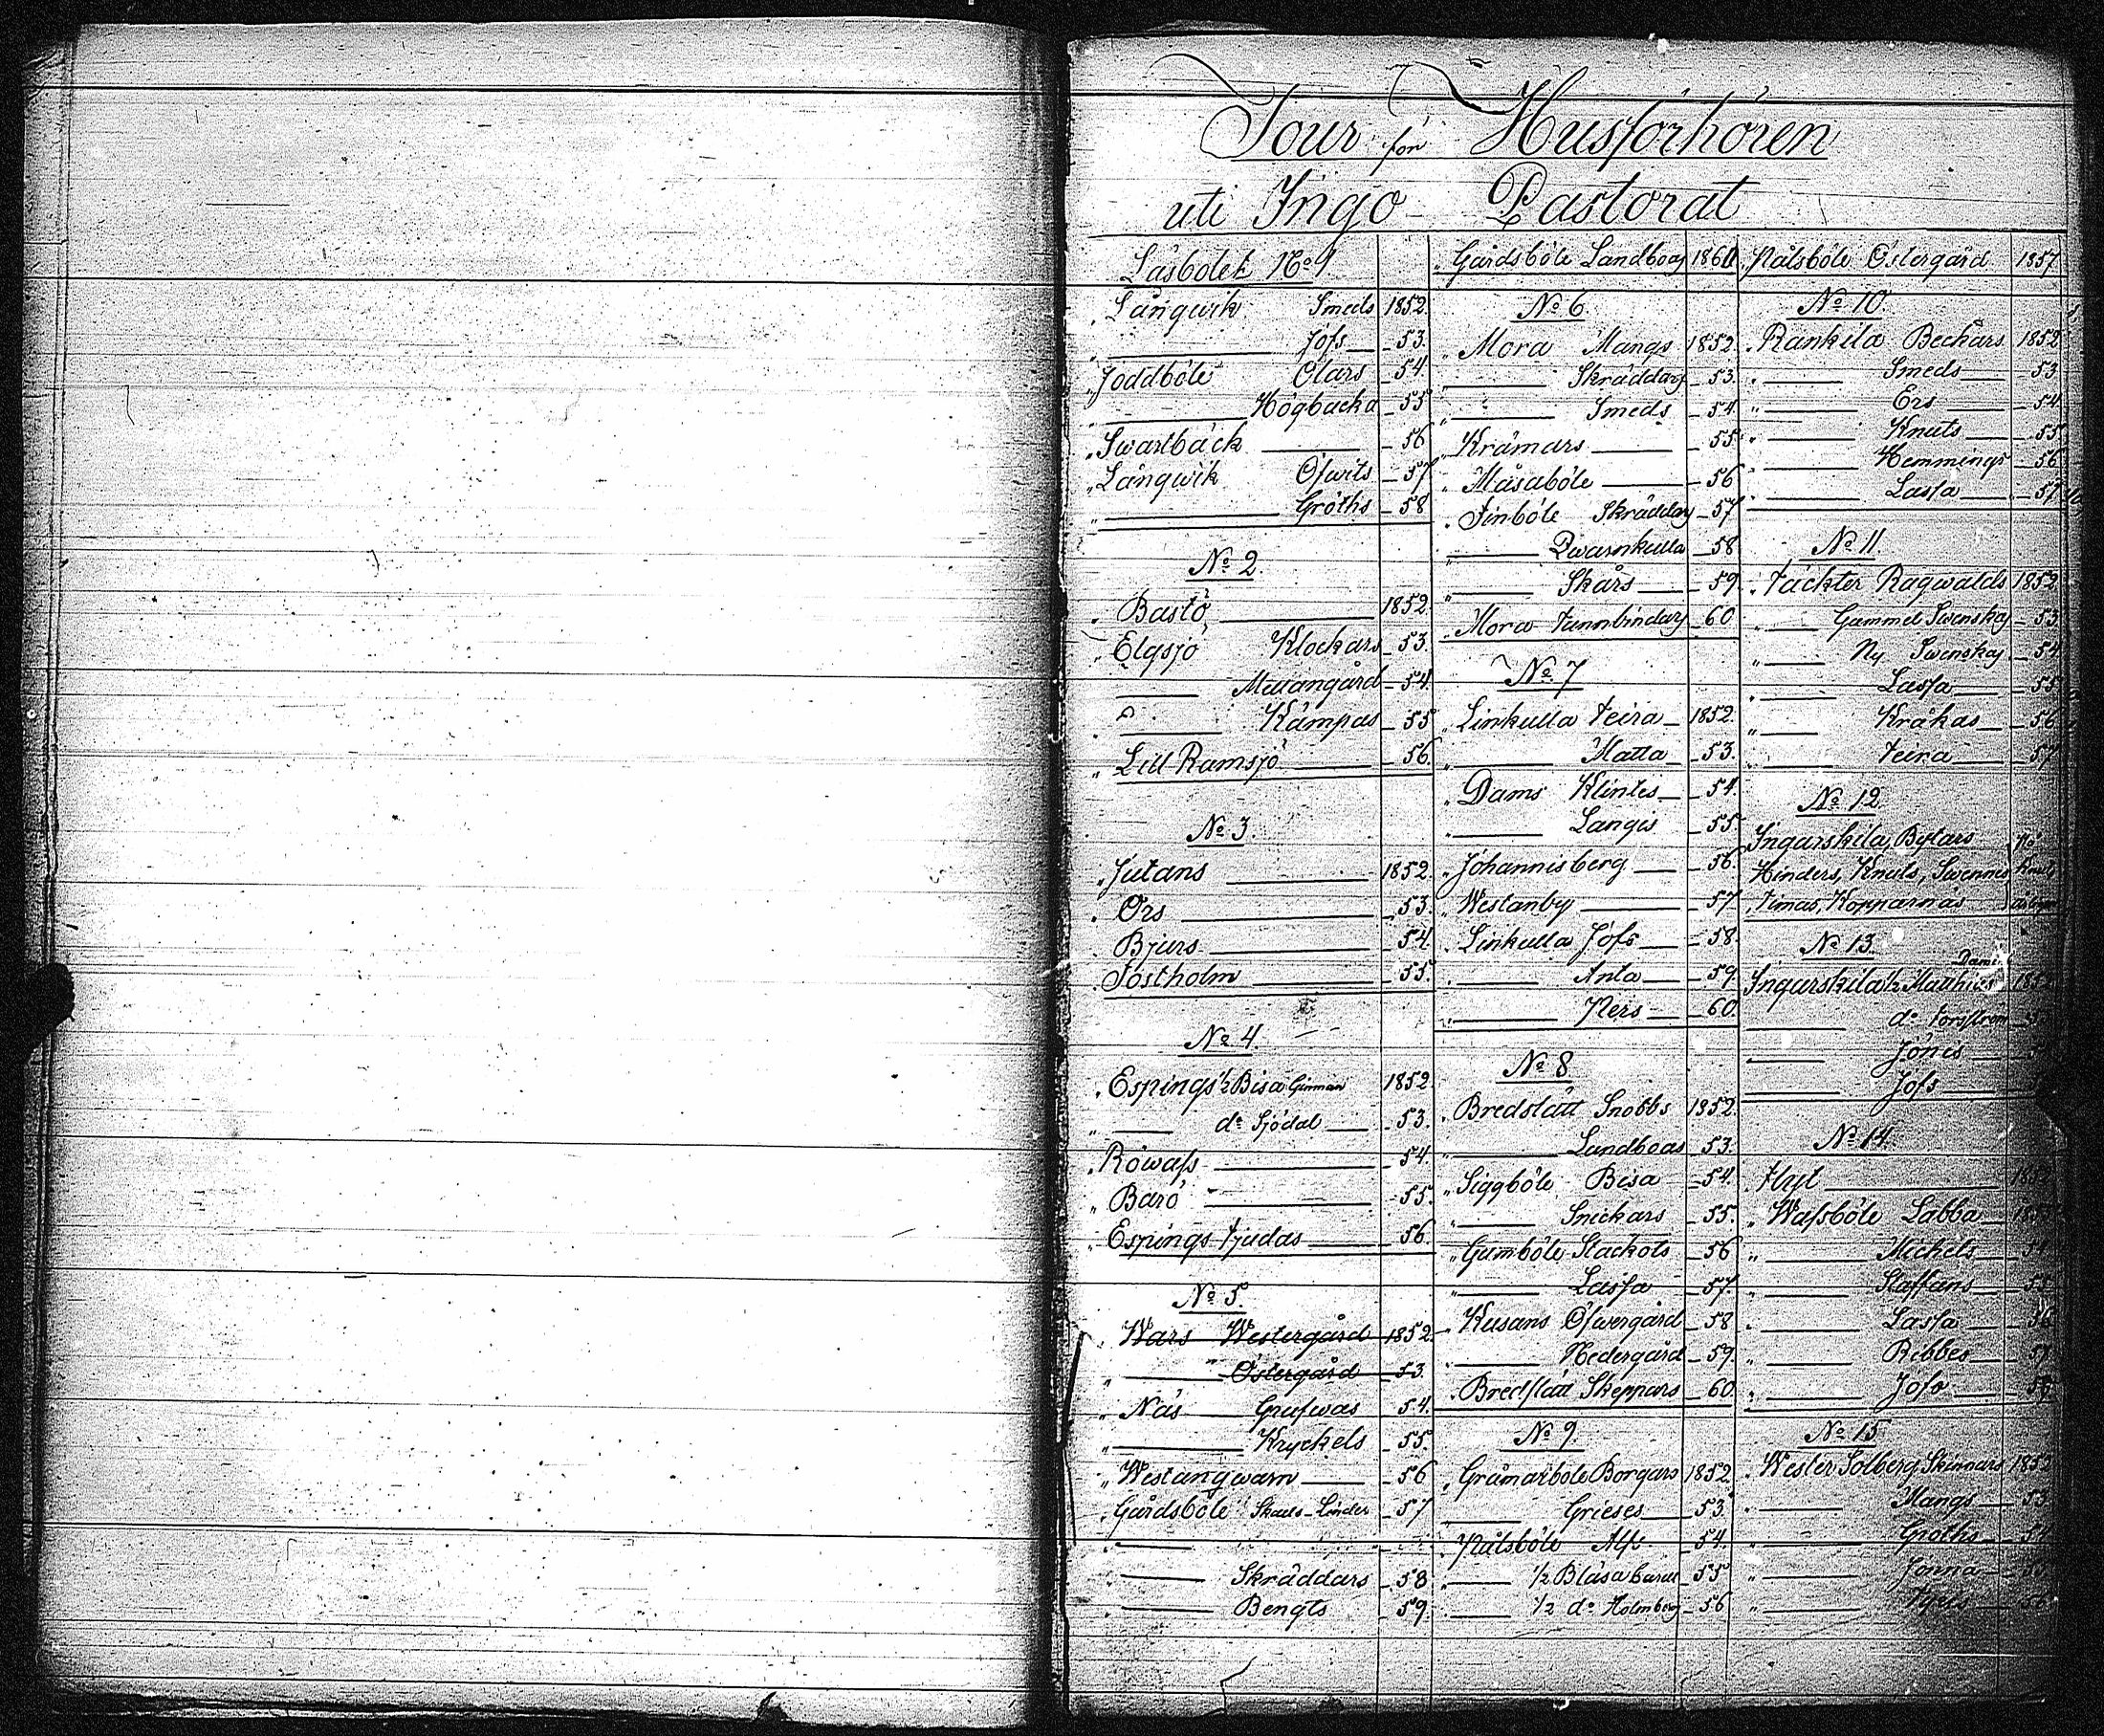 Tour för Husförhören
uti Ingo Pastorat
Läsbolet No 1
Långwik Smeds 1852.
" Jofs 53.
" Joddböle Olars 54
" Högbacka 55
" Swartbäck 56
" Långwik Öfwits 57
" Gröths 58
No 2.
" Bastö 1852.
" Elgsjö Klockars 53.
Mellangård 54.
" Kämpas 55
" Lill Ramsjö 56.
No 3.
" Jutans 1852.
" Örs 53.
" Bjurs 54.
" Tostholm 55.
No 4.
" Espings ½ Bisa Ginman 1852.
" do Sjödal 53.
" Röwafs 54.
" Barö 55.
" Espings Tjudas 56.
No 5
Wars Westergård 1852.
" " Östergård 53.
" Näs Grefwas 54.
" Kryckels 55.
" Westangwarn 56
" Gårdsböle Linder 57
" Skräddars 58
" Bengts 59.
" Gårdsböle Landboas 1860
No 6.
" Mora Mangs 1852.
" Skräddars 53.
" Smeds 54.
" Krämars 55.
" Måsaböle 56
" Finböle Skräddars 57
" Qwarnkulla 58
" Skärs 59.
" Mora Tunnbindars 60
No 7
" Linkulla Teira 1852.
" Matta 53.
" Dams Klintis 54.
" Langis 55.
" Johannisberg 56.
" Westanby 57
" Linkulla Jofs 58.
" Anta 59.
" Pers 60.
No 8
" Bredslätt Snobbs 1852.
" Landboas 53.
" Siggböle Bisa 54.
" Snickars 55.
" Gumböle Stackots 56
" Lassa 57.
" Kusans Öfwergård 58
" Nedergård 59.
" Bredslätt Skeppars 60.
No 9.
" Gråmarböle Borgars 1852.
Grieses 53.
" Pålsböle Alfs 54.
" ½ Blåsa 55
½ do Holmberg 56
" Pålsböle Östergård 1857
No 10.
" Rankila Beckars 1852
" Smeds 53
" Ers 54
" Knuts 55
" Hemmings 56
" Lassa 57
No 11.
" Täckter Ragwalds 1852.
" Gammel Swenskas 53
" Ny Swenskas 54
" Lassa 55
" Kråkas 56
" Teira 57
No 12
Ingarskila, Bytars
Hinders, Knuts, Swennis
Timas, Kopparnäs
No 13.
Ingarskila ½ Matthias 1852
do Forsström
Jönis
Jofs
No 14.
" Flyt 1852
" Wafsböle Labba
" Michels 54
" Staffans 55
" Lassa 56
" Ribbes 57
" Jofs
No 15
" Wester Solberg Skinnars 1852
" Mangs 53
" Groths 54
" Jonna 55
" 56